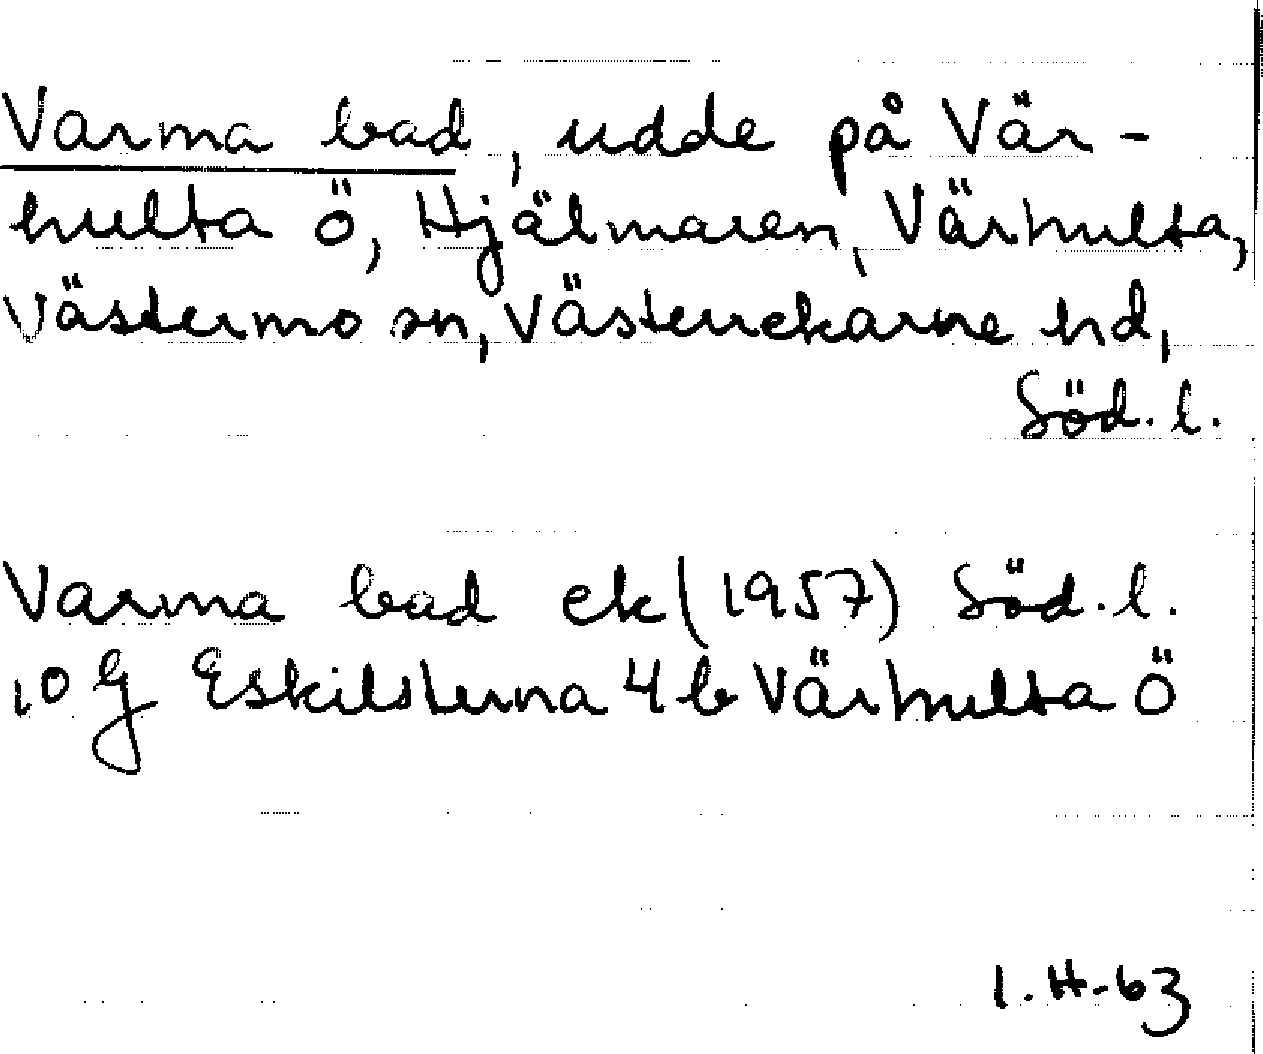 Varma bad, udde på Vär-
hulta Ö, Hjälmaren, Värhulta,
Västermo sn, Västerrekarne hd,
Söd. l.
Varma bad ek (1957) Söd. l.
10 G Eskilstuna 4 b Värhulta Ö
I. H-63